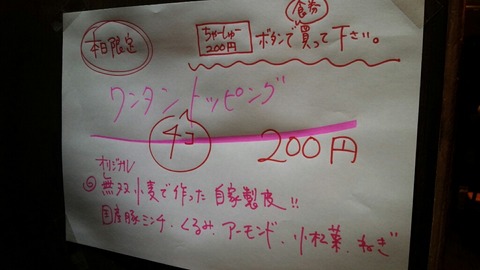 本日限定
ちゃーしゅー
200円
食券
ボタンで買って下さい。
ワンタントッピング
4コ
200円
オリジナル
無双小麦で作った自家製皮!!
国産豚ミンチ、くるみ、アーモンド、小松菜、ねぎ